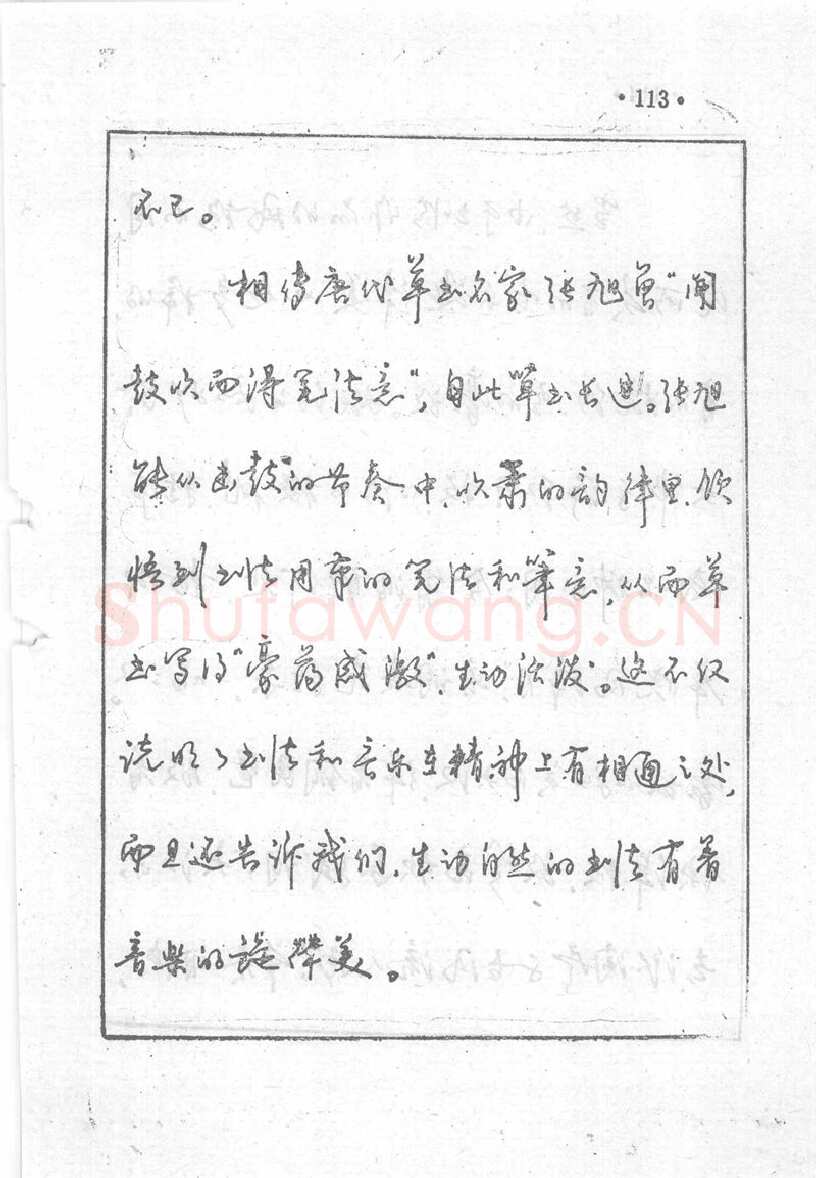 ·113·
不已。
相传唐代草书名家张旭曾“闻
鼓吹而得笔法意”，自此草书长进。张旭
能从击鼓的节奏中，吹箫的韵律里，领
悟到书法用笔的笔法和笔意，从而草
书写得“豪荡感激”，生动活泼。这不仅
说明了书法和音乐在精神上有相通之处，
而且还告诉我们，生动自然的书法有着
音乐的旋律美。
Shufawang.CN